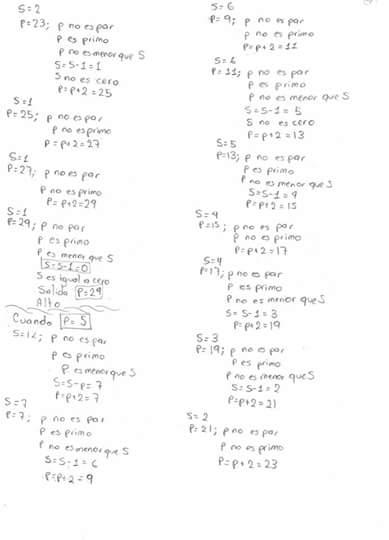 S=2
P=23; p no es par
p es primo
p no es menor que S
S=S-1=1
S no es cero
P=P+2=25
S=1
P=25; p no es par
p no es primo
P=P+2=27
S=1
P=27; p no es par
p no es primo
P=P+2=29
S=1
P=29; p no par
p es primo
p es menor que S
S=S-1=0
S es igual a cero
Salida P=29
Alto
Cuando P=5
S=12; p no es par
p es primo
p es menor que S
S=S-P=7
P=P+2=7
S=7
P=7; p no es par
p es primo
p no es menor que S
S=S-1=6
P=P+2=9
S=6
P=9; p no es par
p no es primo
P=P+2=11
S=6
P=11; p no es par
p es primo
p no es menor que S
S=S-1=5
S no es cero
P=P+2=13
S=5
P=13; p no es par
p es primo
p no es menor que S
S=S-1=4
P=P+2=15
S=4
P=15; p no es par
p no es primo
P=P+2=17
S=4
P=17; p no es par
p es primo
p no es menor que S
S=S-1=3
P=P+2=19
S=3
P=19; p no es par
p es primo
p no es menor que S
S=S-1=2
P=P+2=21
S=2
P=21; p no es par
p no es primo
P=P+2=23